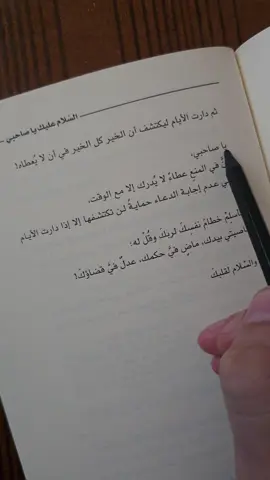 السّلام عليك يا صاحبي
ثم دارت الأيام ليكتشف أن الخير كل الخير في أن لا يُعطاه!
يا صاحبي،
في المنعِ عطاءٌ لا يُدرك إلا مع الوقت،
عدم إجابة الدعاء حمايةٌ لن تكتشفها إلا إذا دارت الأيام
خطامَ نفسِكَ لربكَ وقُلْ له:
بيدك، ماضٍ فيَّ حكمك، عدلٌ فيَّ قضاؤكَ!
والسّلام لقلبكَ